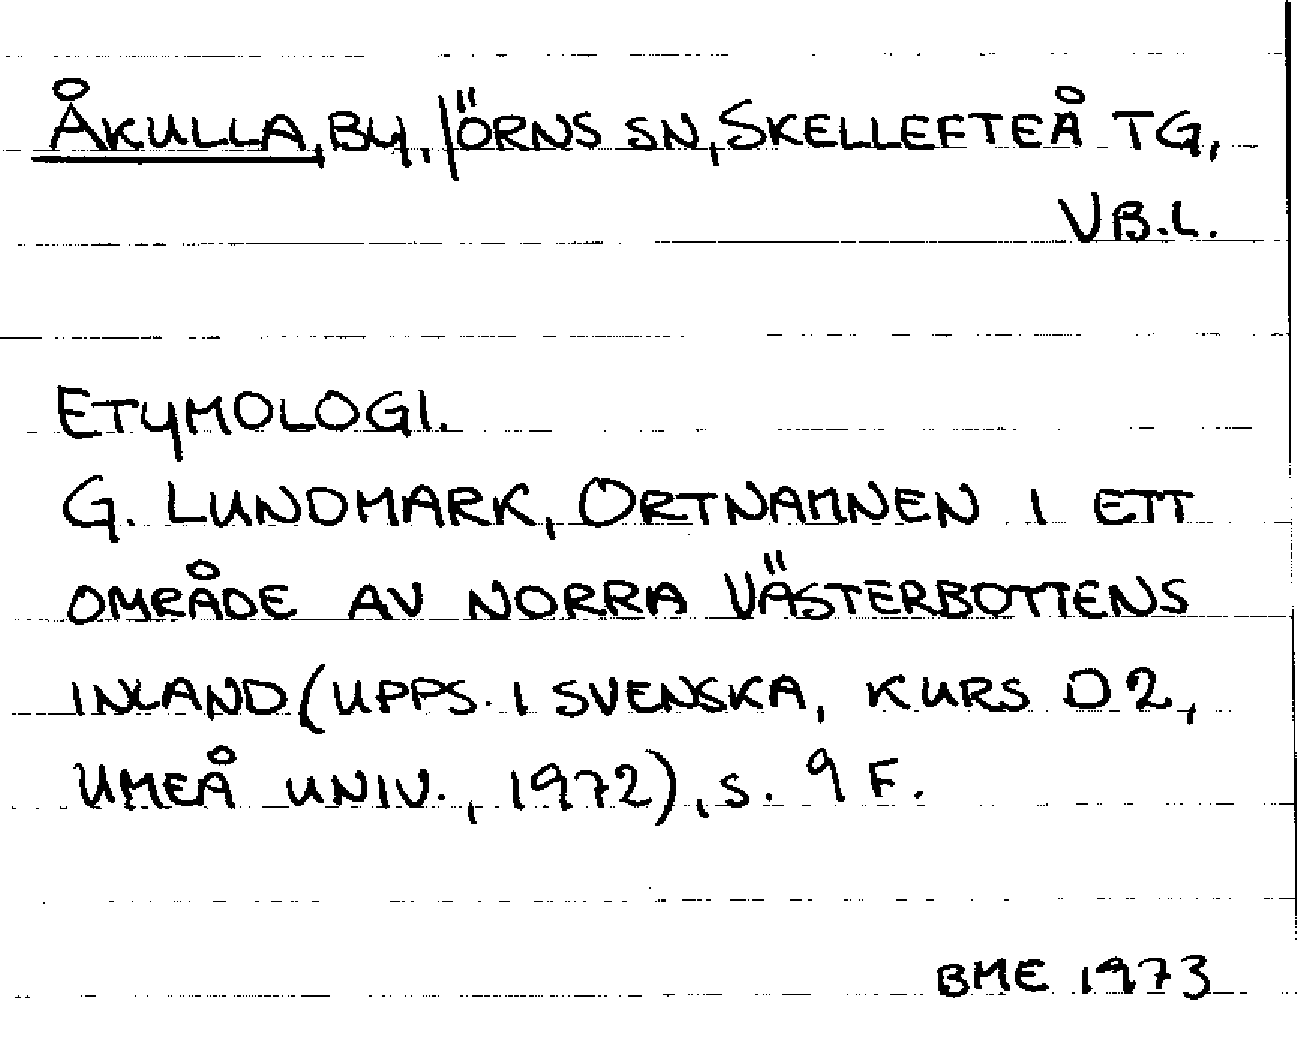 ÅKULLA, BY, JÖRNS SN, SKELLEFTEÅ TG,
VB.L.
ETYMOLOGI.
G. LUNDMARK, ORTNAMNEN I ETT
OMRÅDE AV NORRA VÄSTERBOTTENS
INLAND (UPPS. I SVENSKA, KURS D2,
UMEÅ UNIV., 1972), S. 9 F.
BME 1973